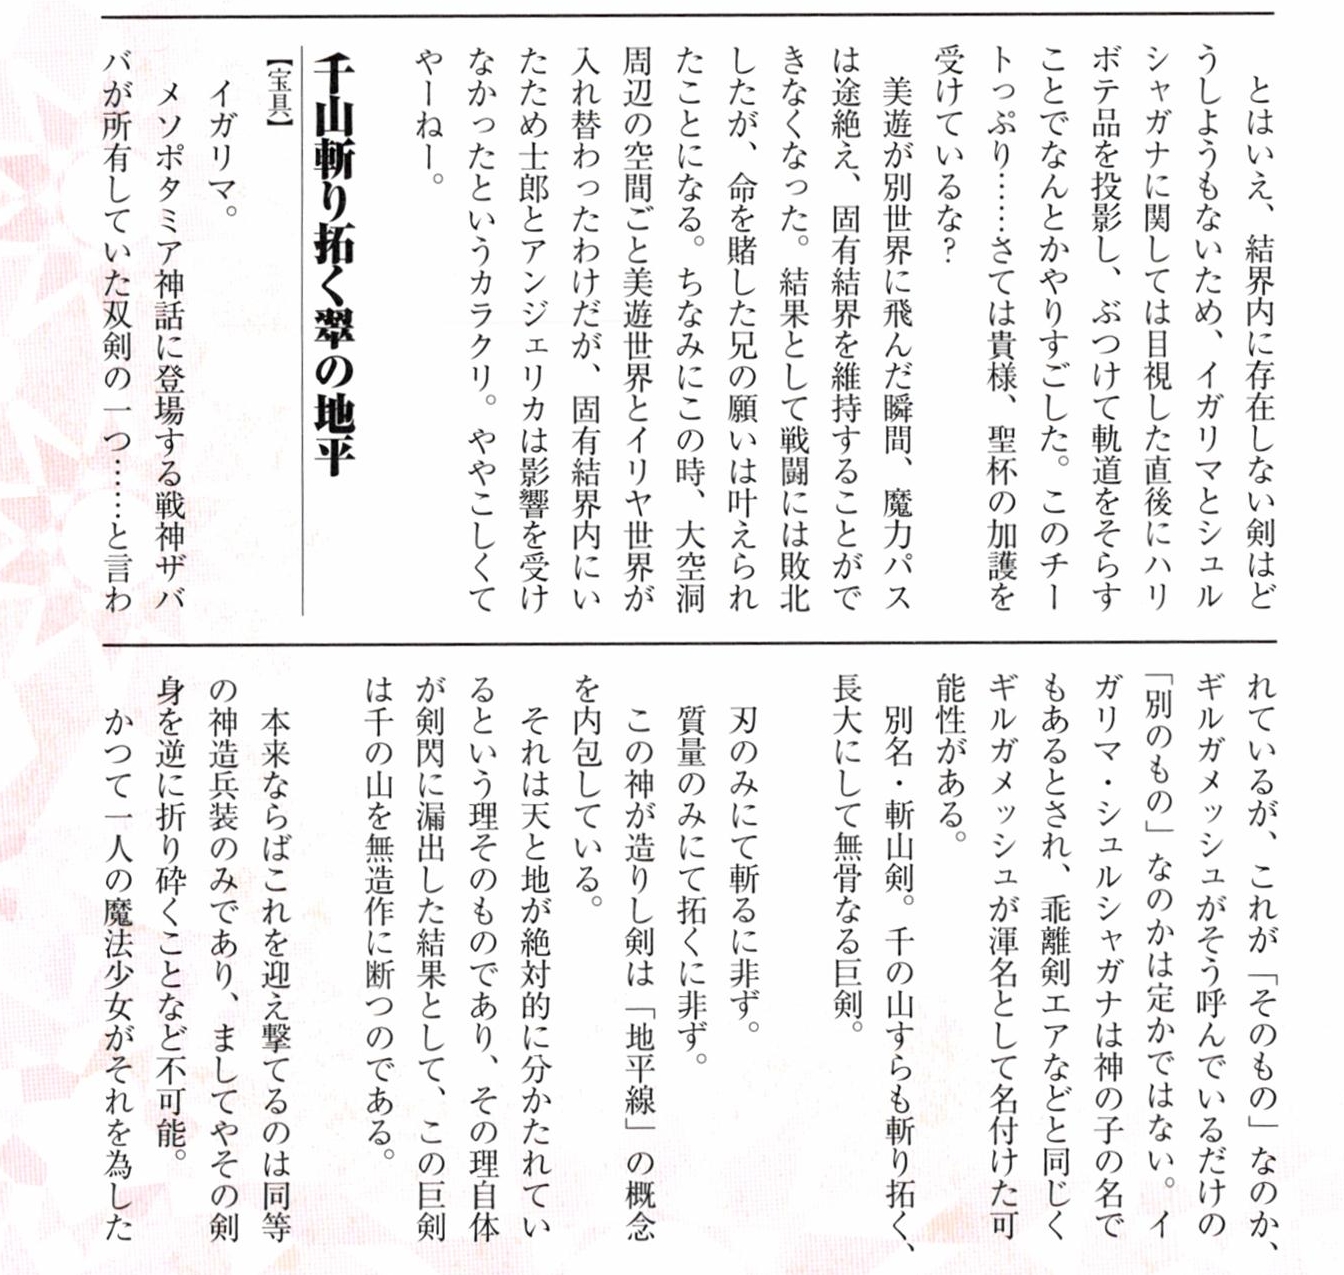 とはいえ、結界内に存在しない剣はど
うしようもないため、イガリマとシュル
シャガナに関しては目視した直後にハリ
ボテ品を投影し、ぶつけて軌道をそらす
ことでなんとかやりすごした。このチー
トっぷり……さては貴様、聖杯の加護を
受けているな?
美遊が別世界に飛んだ瞬間、魔力パス
は途絶え、固有結界を維持することがで
きなくなった。結果として戦闘には敗北
したが、命を賭した兄の願いは叶えられ
たことになる。ちなみにこの時、大空洞
周辺の空間ごと美遊世界とイリヤ世界が
入れ替わったわけだが、固有結界内にい
たため士郎とアンジェリカは影響を受け
なかったというカラクリ。ややこしくて
やーねー。
千山斬り拓く翠の地平
【宝具】
イガリマ。
メソポタミア神話に登場する戦神ザバ
バが所有していた双剣の一つ……と言わ
れているが、これが「そのもの」なのか、
ギルガメッシュがそう呼んでいるだけの
「別のもの」なのかは定かではない。イ
ガリマ・シュルシャガナは神の子の名で
もあるとされ、乖離剣エアなどと同じく
ギルガメッシュが渾名として名付けた可
能性がある。
別名・斬山剣。千の山すらも斬り拓く、
長大にして無骨なる巨剣。
刃のみにて斬るに非ず。
質量のみにて拓くに非ず。
この神が造りし剣は「地平線」の概念
を内包している。
それは天と地が絶対的に分かたれてい
るという理そのものであり、その理自体
が剣閃に漏出した結果として、この巨剣
は千の山を無造作に断つのである。
本来ならばこれを迎え撃てるのは同等
の神造兵装のみであり、ましてやその剣
身を逆に折り砕くことなど不可能。
かつて一人の魔法少女がそれを為した